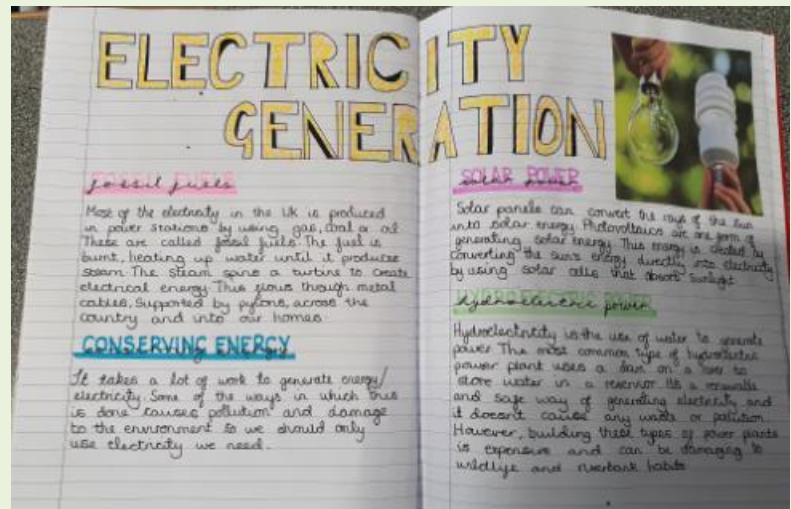 ELECTRICITY
GENERATION
fossil fuels
Most of the electricity in the UK is produced
in power stations by using gas, coal or oil
These are called fossil fuels. The fuel is
burnt, heating up water until it produces
steam. The steam spins a turbine to create
electrical energy. This flows through metal
cables, supported by pylons, across the
country and into our homes
CONSERVING ENERGY
It takes a lot of work to generate energy/
electricity. Some of the ways in which this
is done causes pollution and damage
to the environment so we should only
use electricity we need.
SOLAR POWER
Solar panels can convert the rays of the sun
into solar energy. Photovoltaics are one form of
generating solar energy. This energy is created by
converting the sun's energy directly into electricity
by using solar cells that absorb sunlight
Hydroelectric power
Hydroelectricity is the use of water to generate
power. The most common type of hydroelectric
power plant uses a dam on a river to
store water in a reservoir. Its a renewable
and safe way of generating electricity and
it doesn't cause any waste or pollution.
However, building these types of power plants
is expensive and can be damaging to
wildlife and riverbank habits